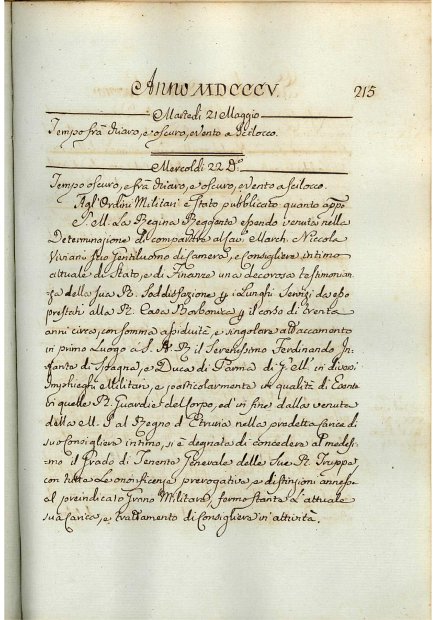 Anno MDCCCV. 215
Martedi 21 Maggio
Tempo frà chiaro, e oscuro, e vento a Scilocco.
Mercoldi 22 Do.
Tempo oscuro, e frà chiaro, e oscuro, e vento a scilocco.
Agl'Ordini Militari è stato pubblicato quanto app.o
S. M. La Regina Reggente essendo venuta nella
Determinazione di compartire al Cav. March. Niccola
Viviani Gentiluomo di Camera, e Consigliere intimo
attuale di Stato, e di Finanze una decorosa testimonian-
za della sua R. Soddisfazione i Lunghi Servizi da esso
prestati alla R. Casa Borbonica il corso di trenta
anni circa, con somma assiduità, e singolare attaccamento
in primo luogo a S. A. R. il Serenissimo Ferdinando In-
fante di Spagna, e Duca di Parma in diversi
Impieghi Militari, e particolarmente in qualità di Esente
di quelle R. Guardie del Corpo, ed in fine dalla venuta
della M. S. al Regno d'Etruria nella predetta Carica di
suo Consigliere intimo, si è degnata di concedere al medesi-
mo il Grado di Tenente Generale delle sue R. Truppe,
con tutte le onorificenze, prerogative, e distinzioni annesse
al preindicato Grado Militare, fermo stante l'attuale
sua Carica, e trattamento di Consigliere in attività.